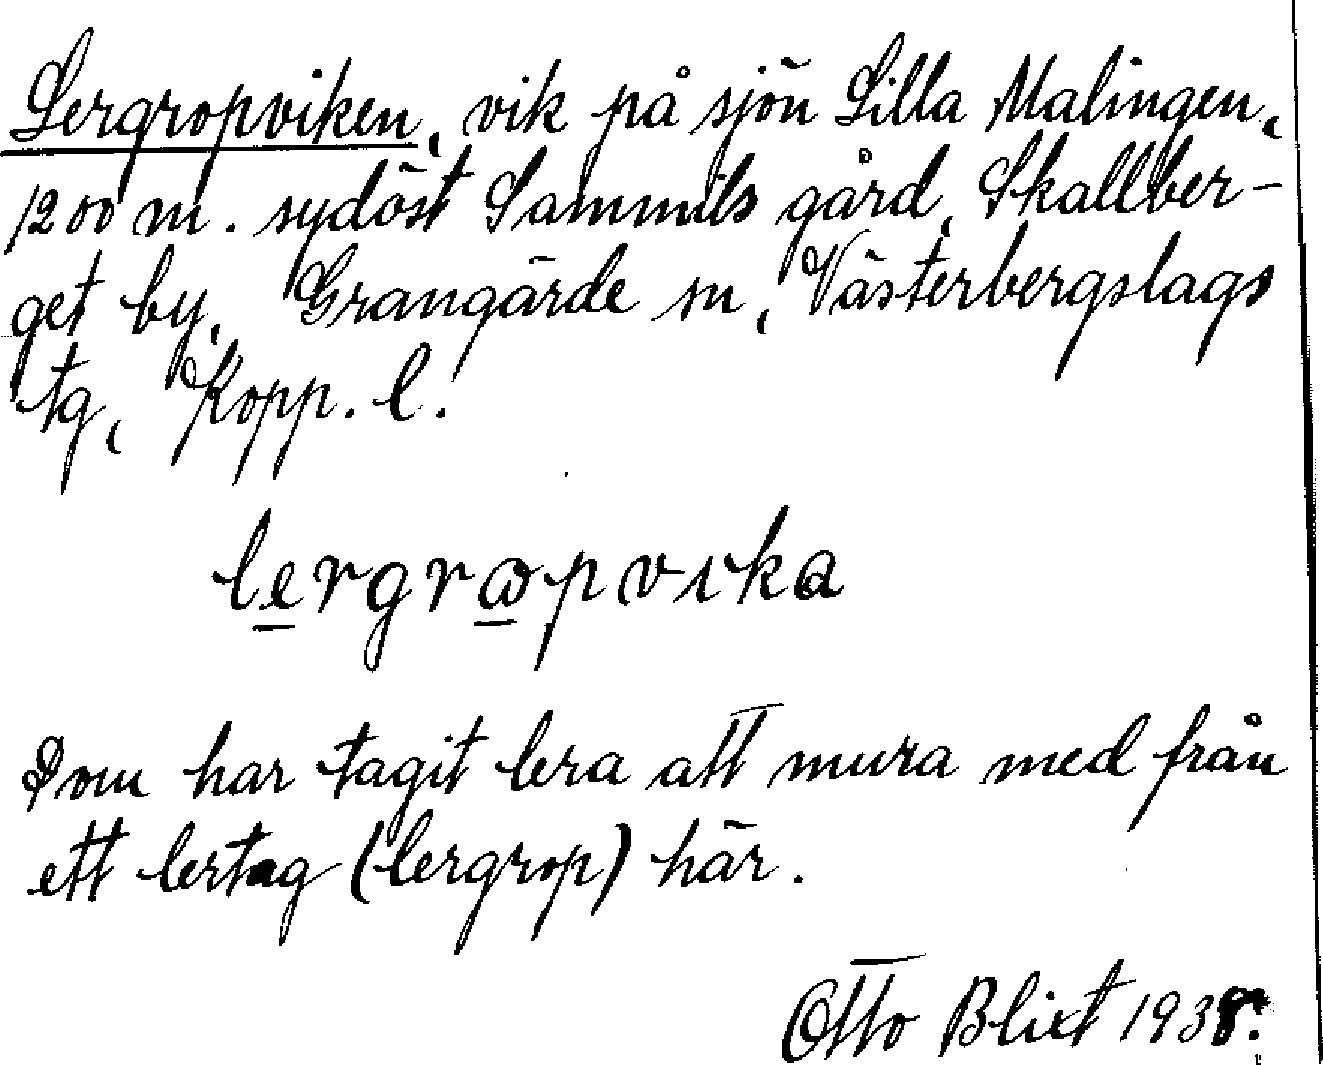 Lergropviken, vik på sjön Lilla Malingen,
1200 m. sydöst Sammils gård, Skallber-
get by, Grangärde sn, Västerbergslags
tg, Kopp. l.
lergrωpvıka
Dom har tagit lera att mura med från
ett lertag (lergrop) här.
Otto Blixt 1938.